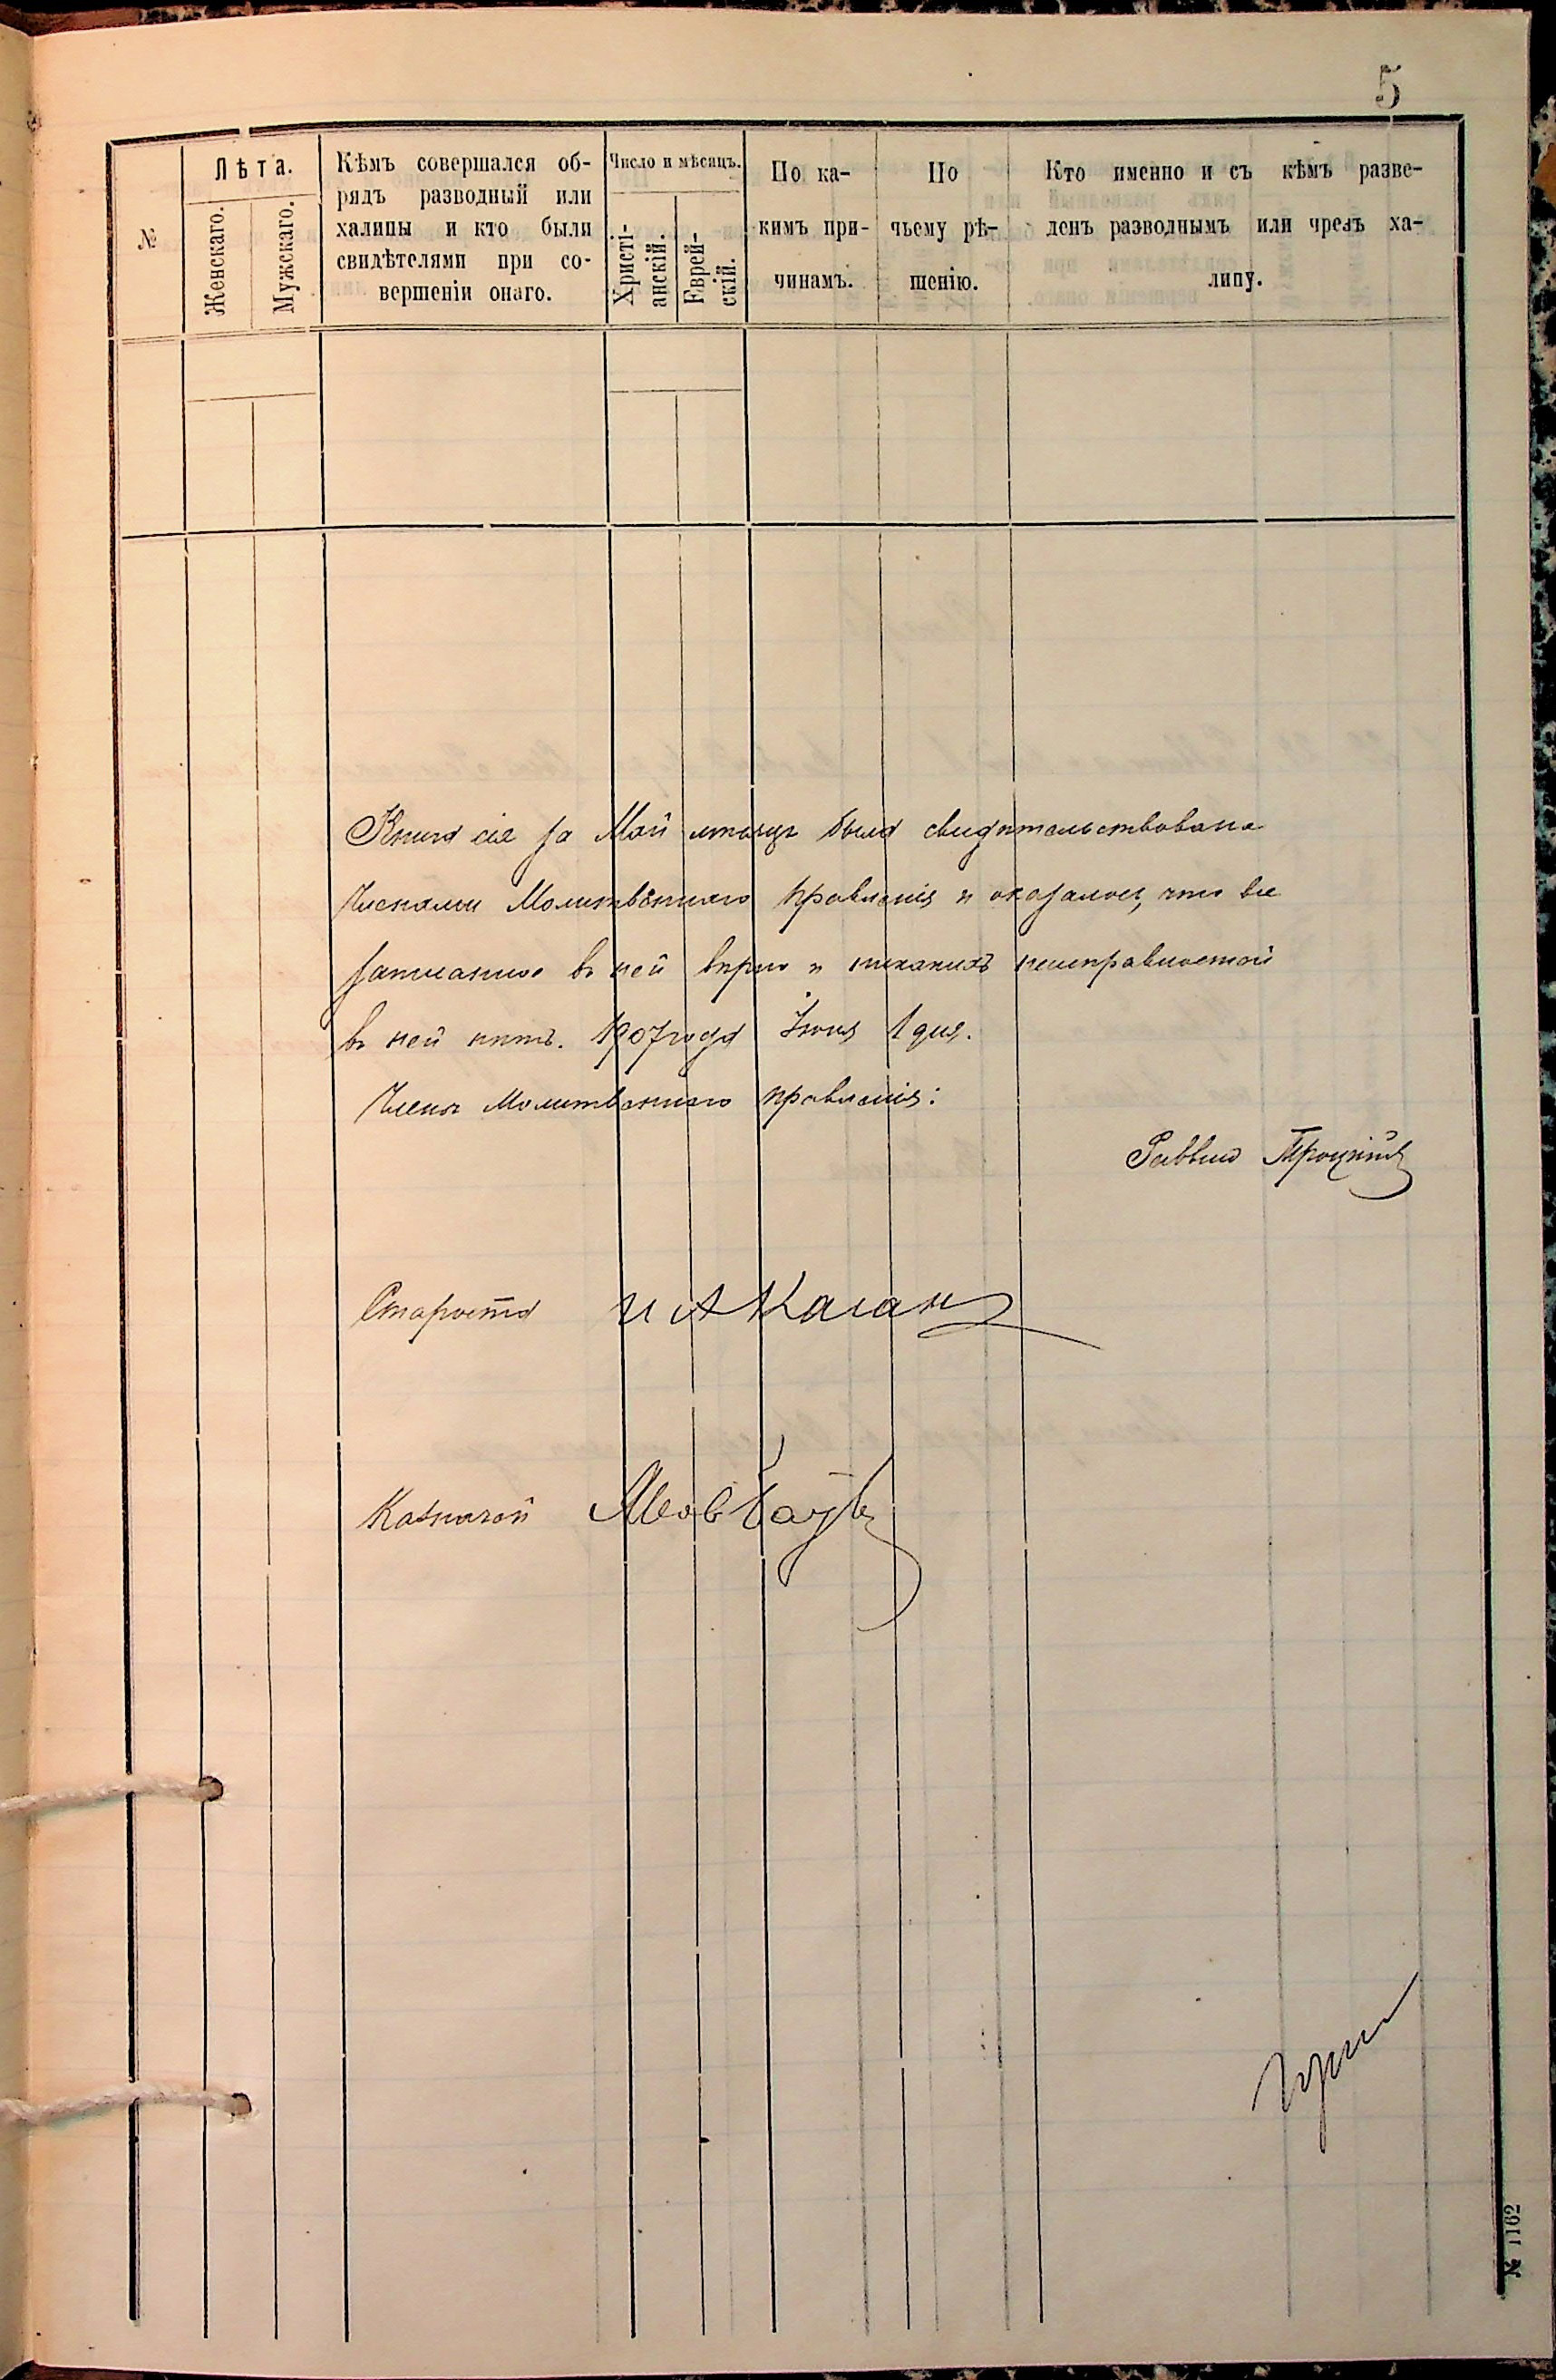 5
№
Лѣта.
Женскаго.
Мужскаго.
Кѣмъ совершался об-
рядъ разводный или
халицы и кто были
свидѣтелями при со-
вершеніи онаго.
Число и мѣсяцъ.
Христі-
анскій.
Еврей-
скій.
По ка-
кимъ при-
чинамъ.
По
чьему рѣ-
шенію.
Кто именно и съ кѣмъ разве-
денъ разводнымъ или чрезъ ха-
лицу.
Книга сія за Май мѣсяцъ была свидѣтельствована
Членами Молитвеннаго Правленія и оказалось, что все
записанное въ ней вѣрно и никакихъ неисправностей
въ ней нѣтъ. 1907 года Іюня 1 дня.
Члены Молитвеннаго Правленія:
Раввинъ Троцкій
Староста И А Каганъ
Казначей
№ 1162